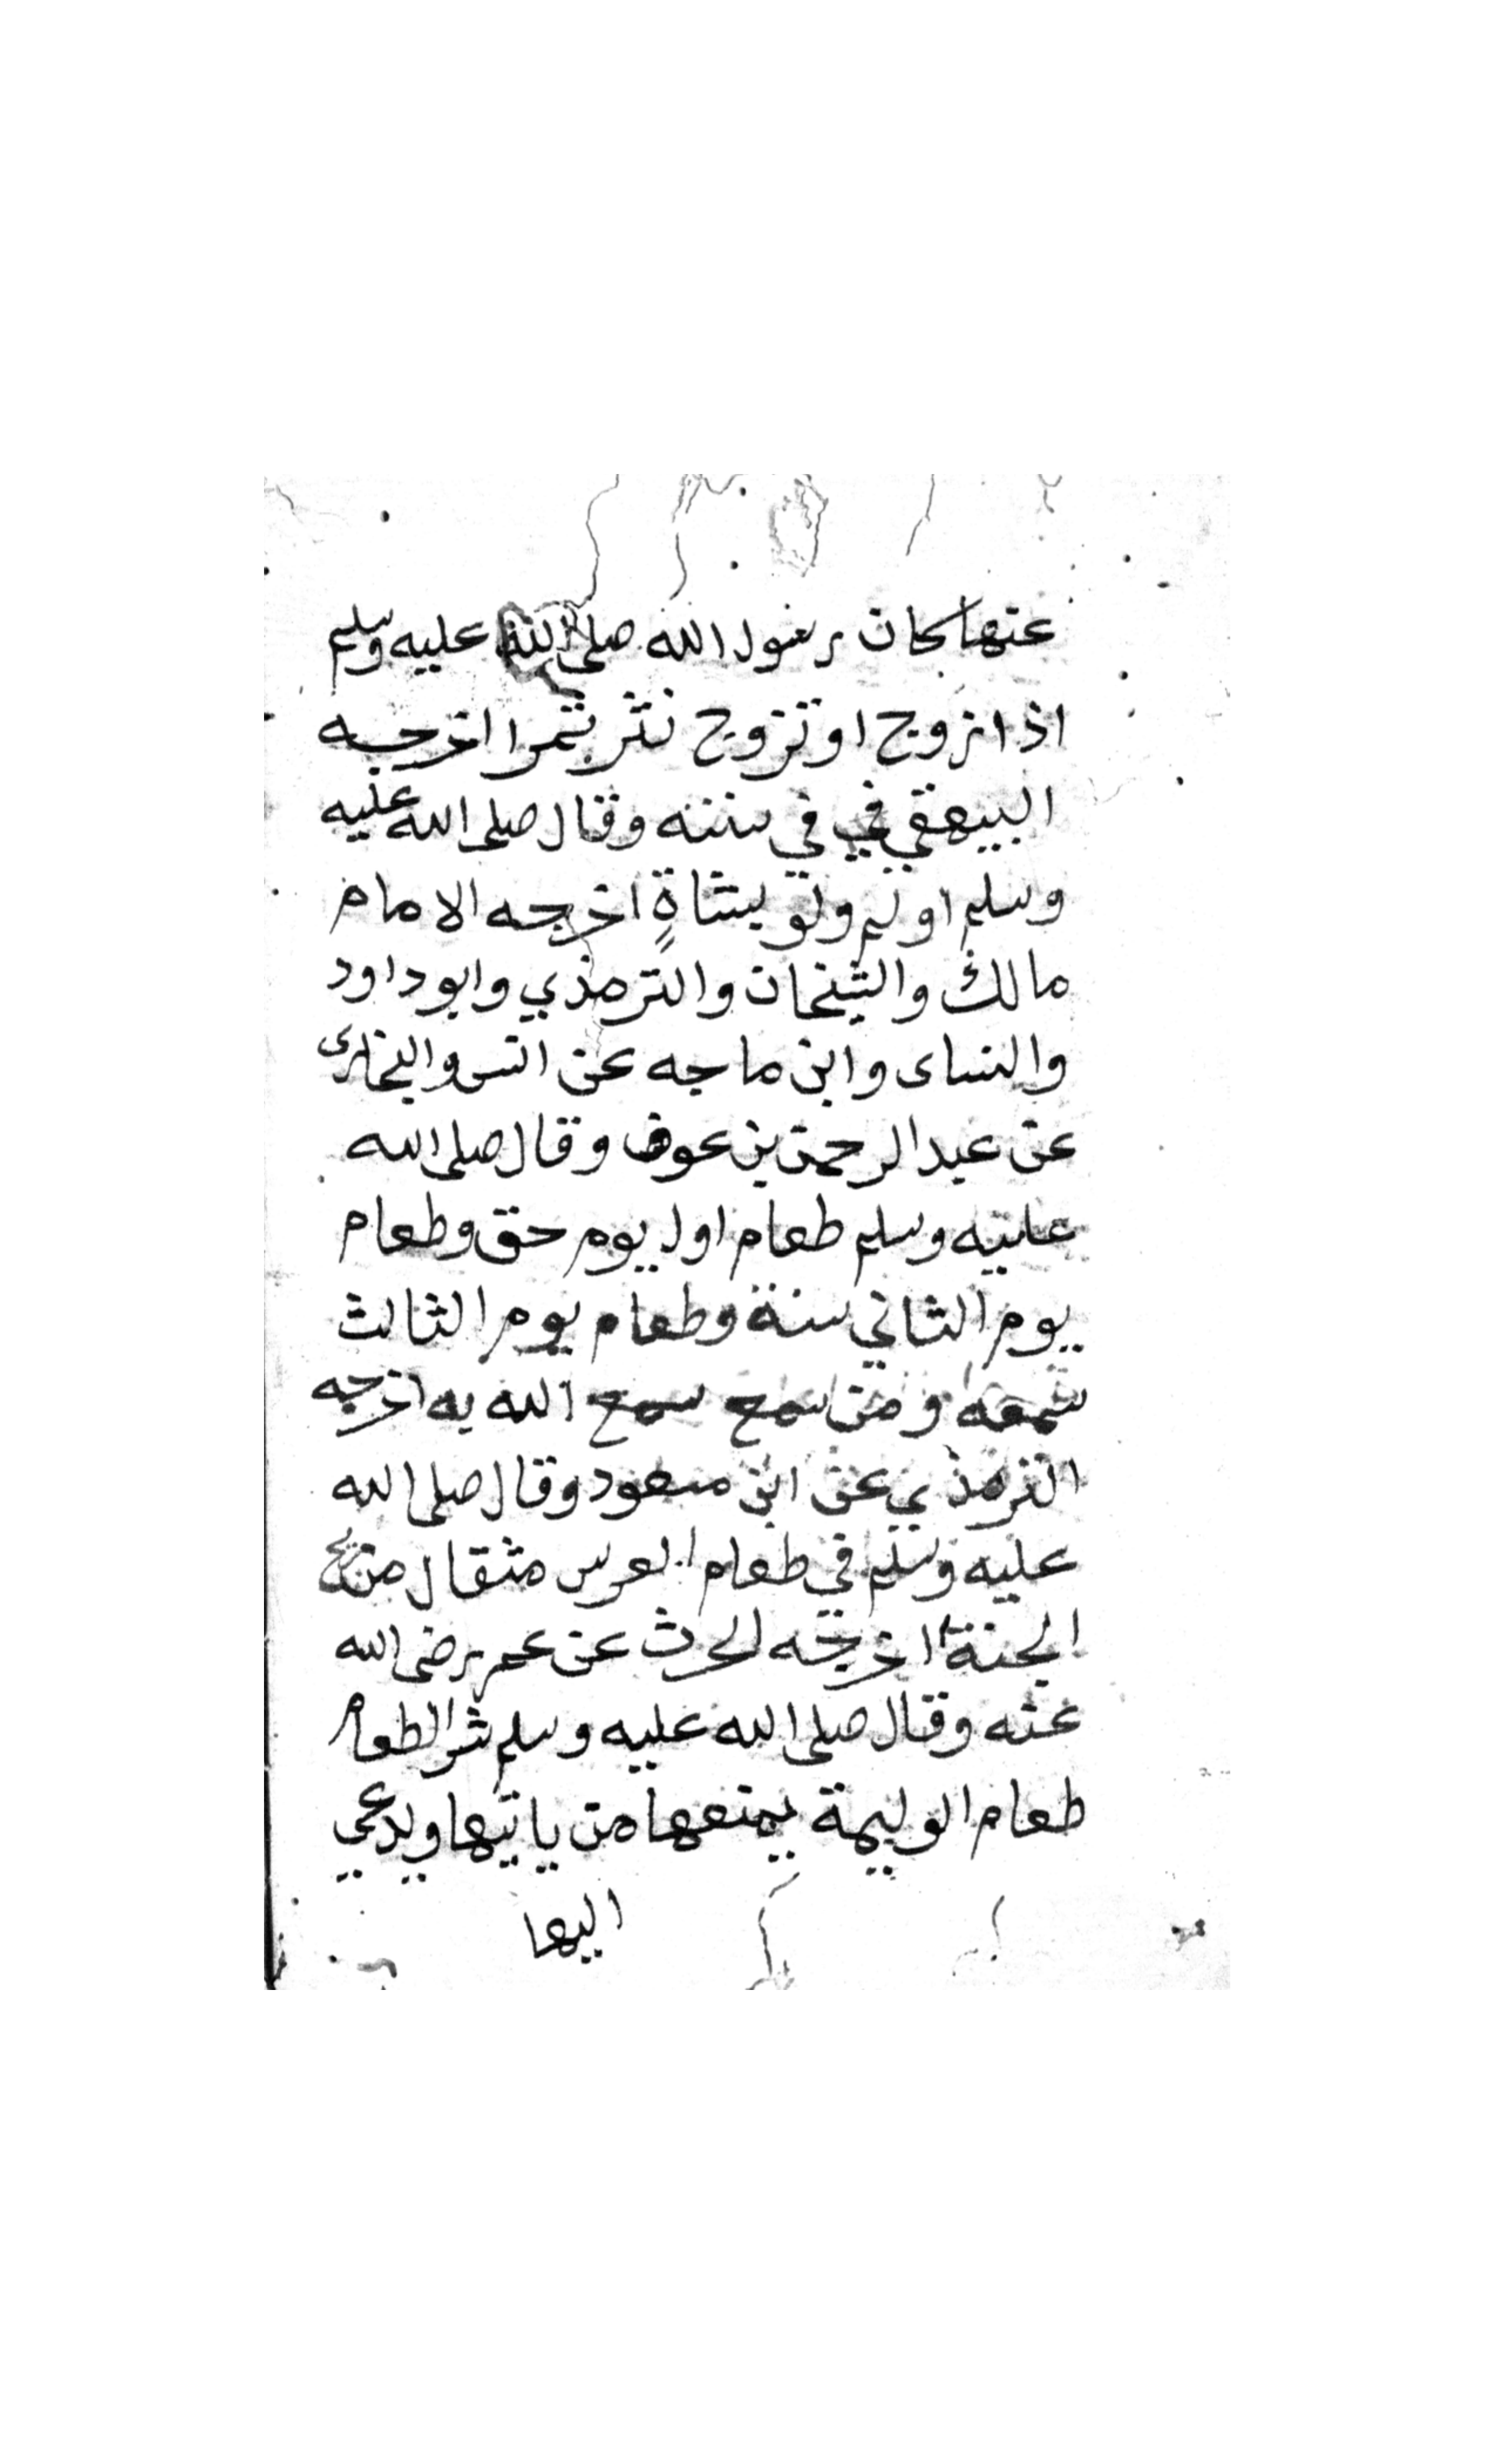 عنها كان رسول الله صلى الله عليه وسلم
اذا زوج او تزوج نثر تمرا اخرجه
البيهقي في سننه وقال صلى الله عليه
وسلم اولم ولو بشاةٍ اخرجه الامام
مالك والشيخان والترمذي وابو داود
والنساى وابن ماجه عن انس والبخارى
عن عبد الرحمن بن عوف وقال صلى الله
عليه وسلم طعام اول يوم حق وطعام
يوم الثاني سنة وطعام يوم الثالث
سمعه ومن سمع سمع الله به اخرجه
الترمذي عن ابن مسعود وقال صلى الله
عليه وسلم في طعام العرس مثقال من ريح
الجنة اخرجه الحرث عن عمر رضى الله
عنه وقال صلى الله عليه وسلم شر الطعام
طعام الوليمة يمنعها من ياتيها ويدعي
اليها